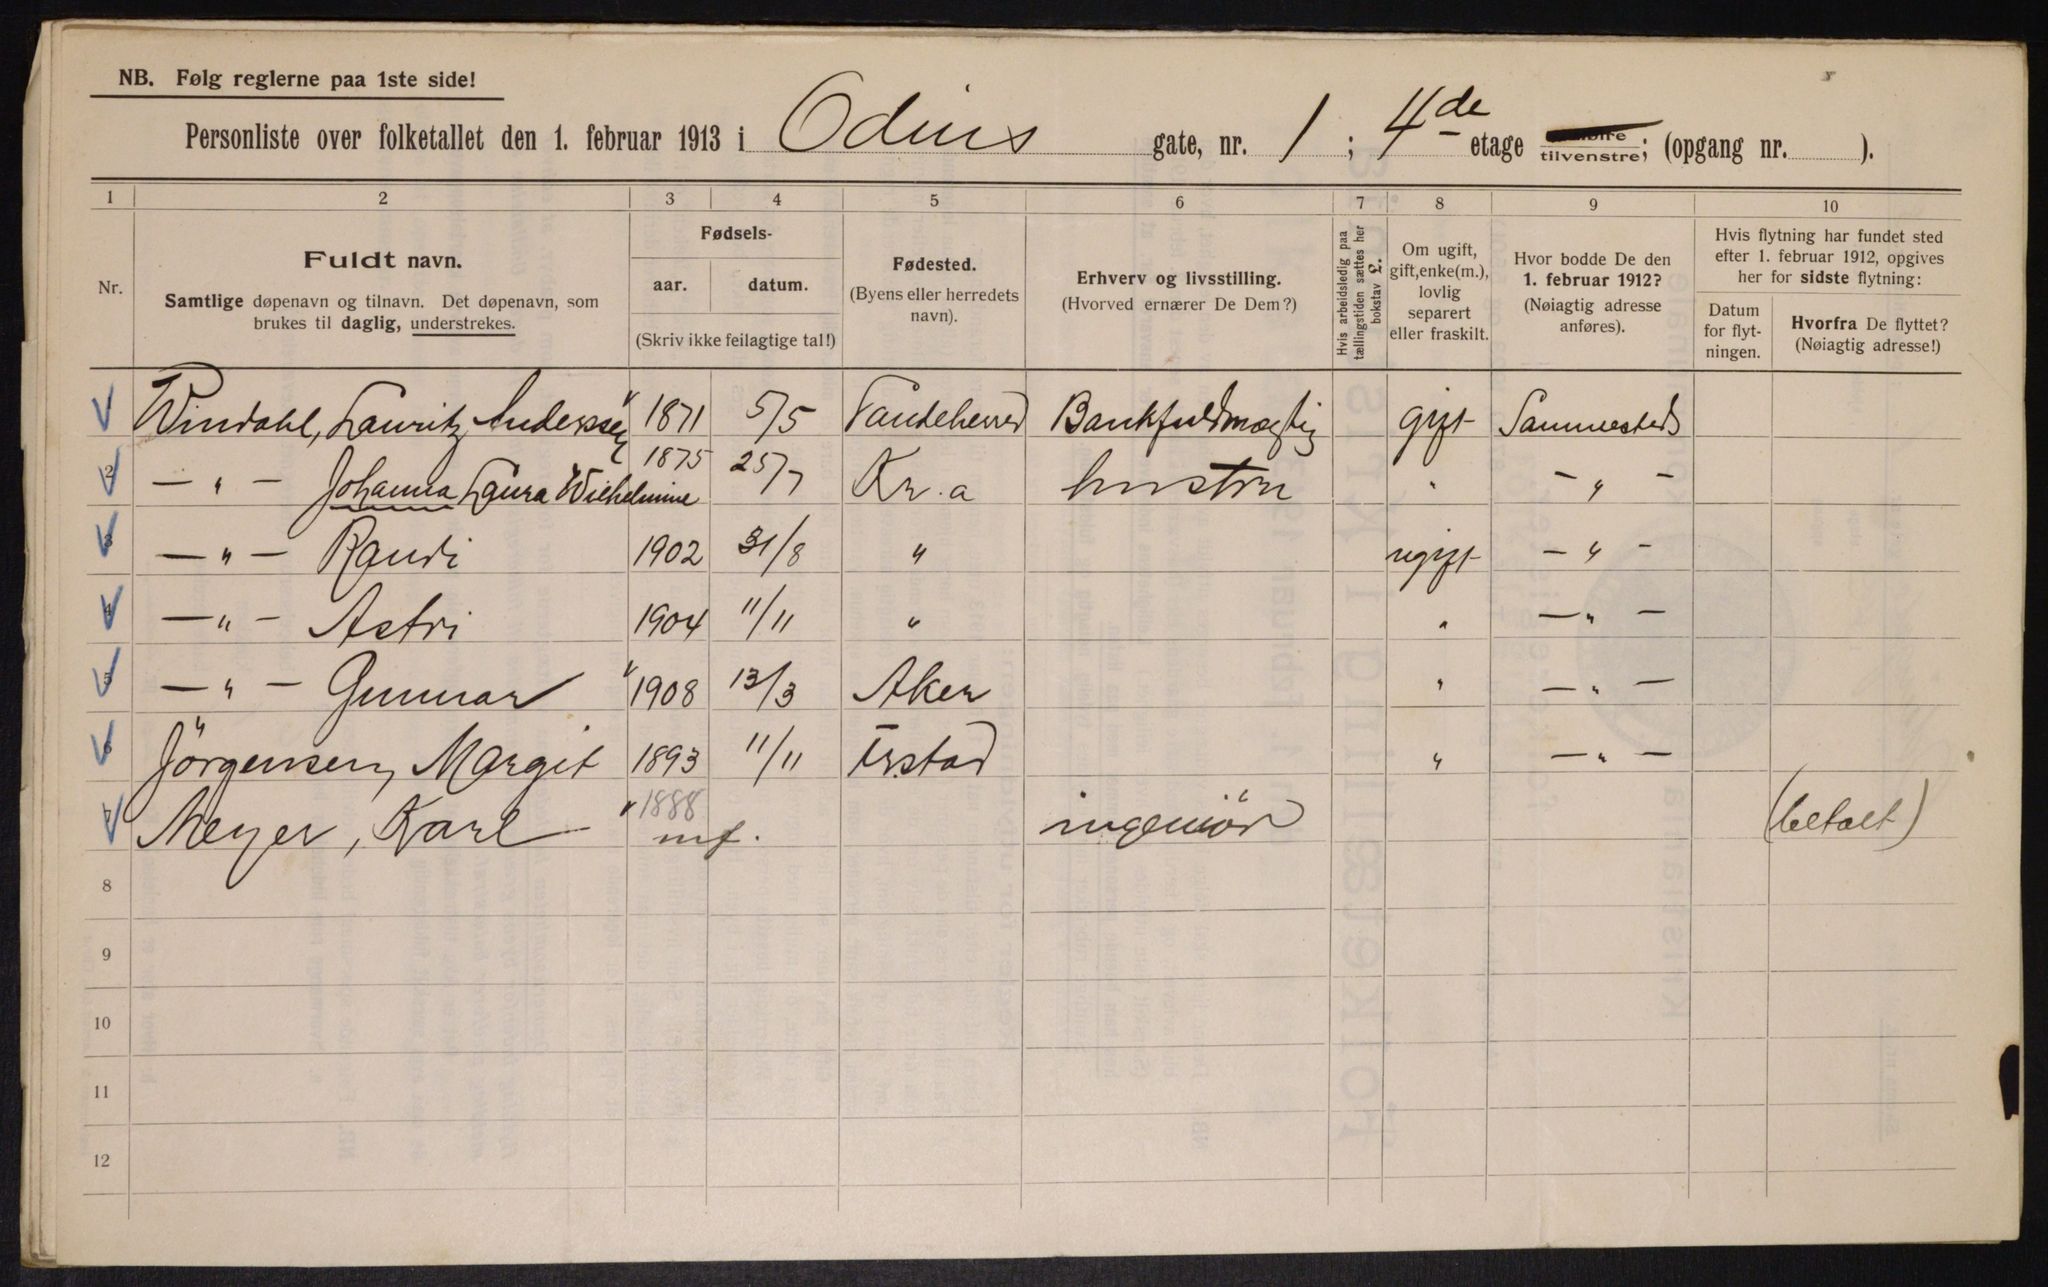 NB. Følg reglerne paa 1ste side!
Personliste over folketallet den 1. februar 1913 i Odins gate, nr. 1 ; 4de etage tilvenstre; (opgang nr. ).
1 2 3 4 5 6 7 8 9 10
Nr.
Fuldt navn.
Samtlige døpenavn og tilnavn. Det døpenavn, som
brukes til daglig, understrekes.
Fødsels-
aar. datum.
(Skriv ikke feilagtige tal!)
Fødested.
(Byens eller herredets
navn).
Erhverv og livsstilling.
(Hvorved ernærer De Dem?)
Hvis arbeidsledig paa
tællingstiden sættes her
bokstav L.
Om ugift,
gift, enke(m.),
lovlig
separert
eller fraskilt.
Hvor bodde De den
1. februar 1912?
(Nøiagtig adresse
anføres).
Hvis flytning har fundet sted
efter 1. februar 1912, opgives
her for sidste flytning:
Datum
for flyt-
ningen.
Hvorfra De flyttet?
(Nøiagtig adresse!)
1 Windahl, Lauritz Anderssen 1871 5/5 Sandeherred Bankfuldmægtig gift Sammesteds
2 — " — Johanna Laura Wilhelmine 1875 25/7 Kr.a hustru " — " —
3 — " — Randi 1902 31/8 " ugift — " —
4 — " — Astri 1904 11/11 " " — " —
5 — " — Gunnar 1908 13/3 Aker " — " —
6 Jörgensen, Margit 1893 11/11 " — " —
7 Meyer, Karl 1888 mf. ingeniör (betalt)
8
9
10
11
12